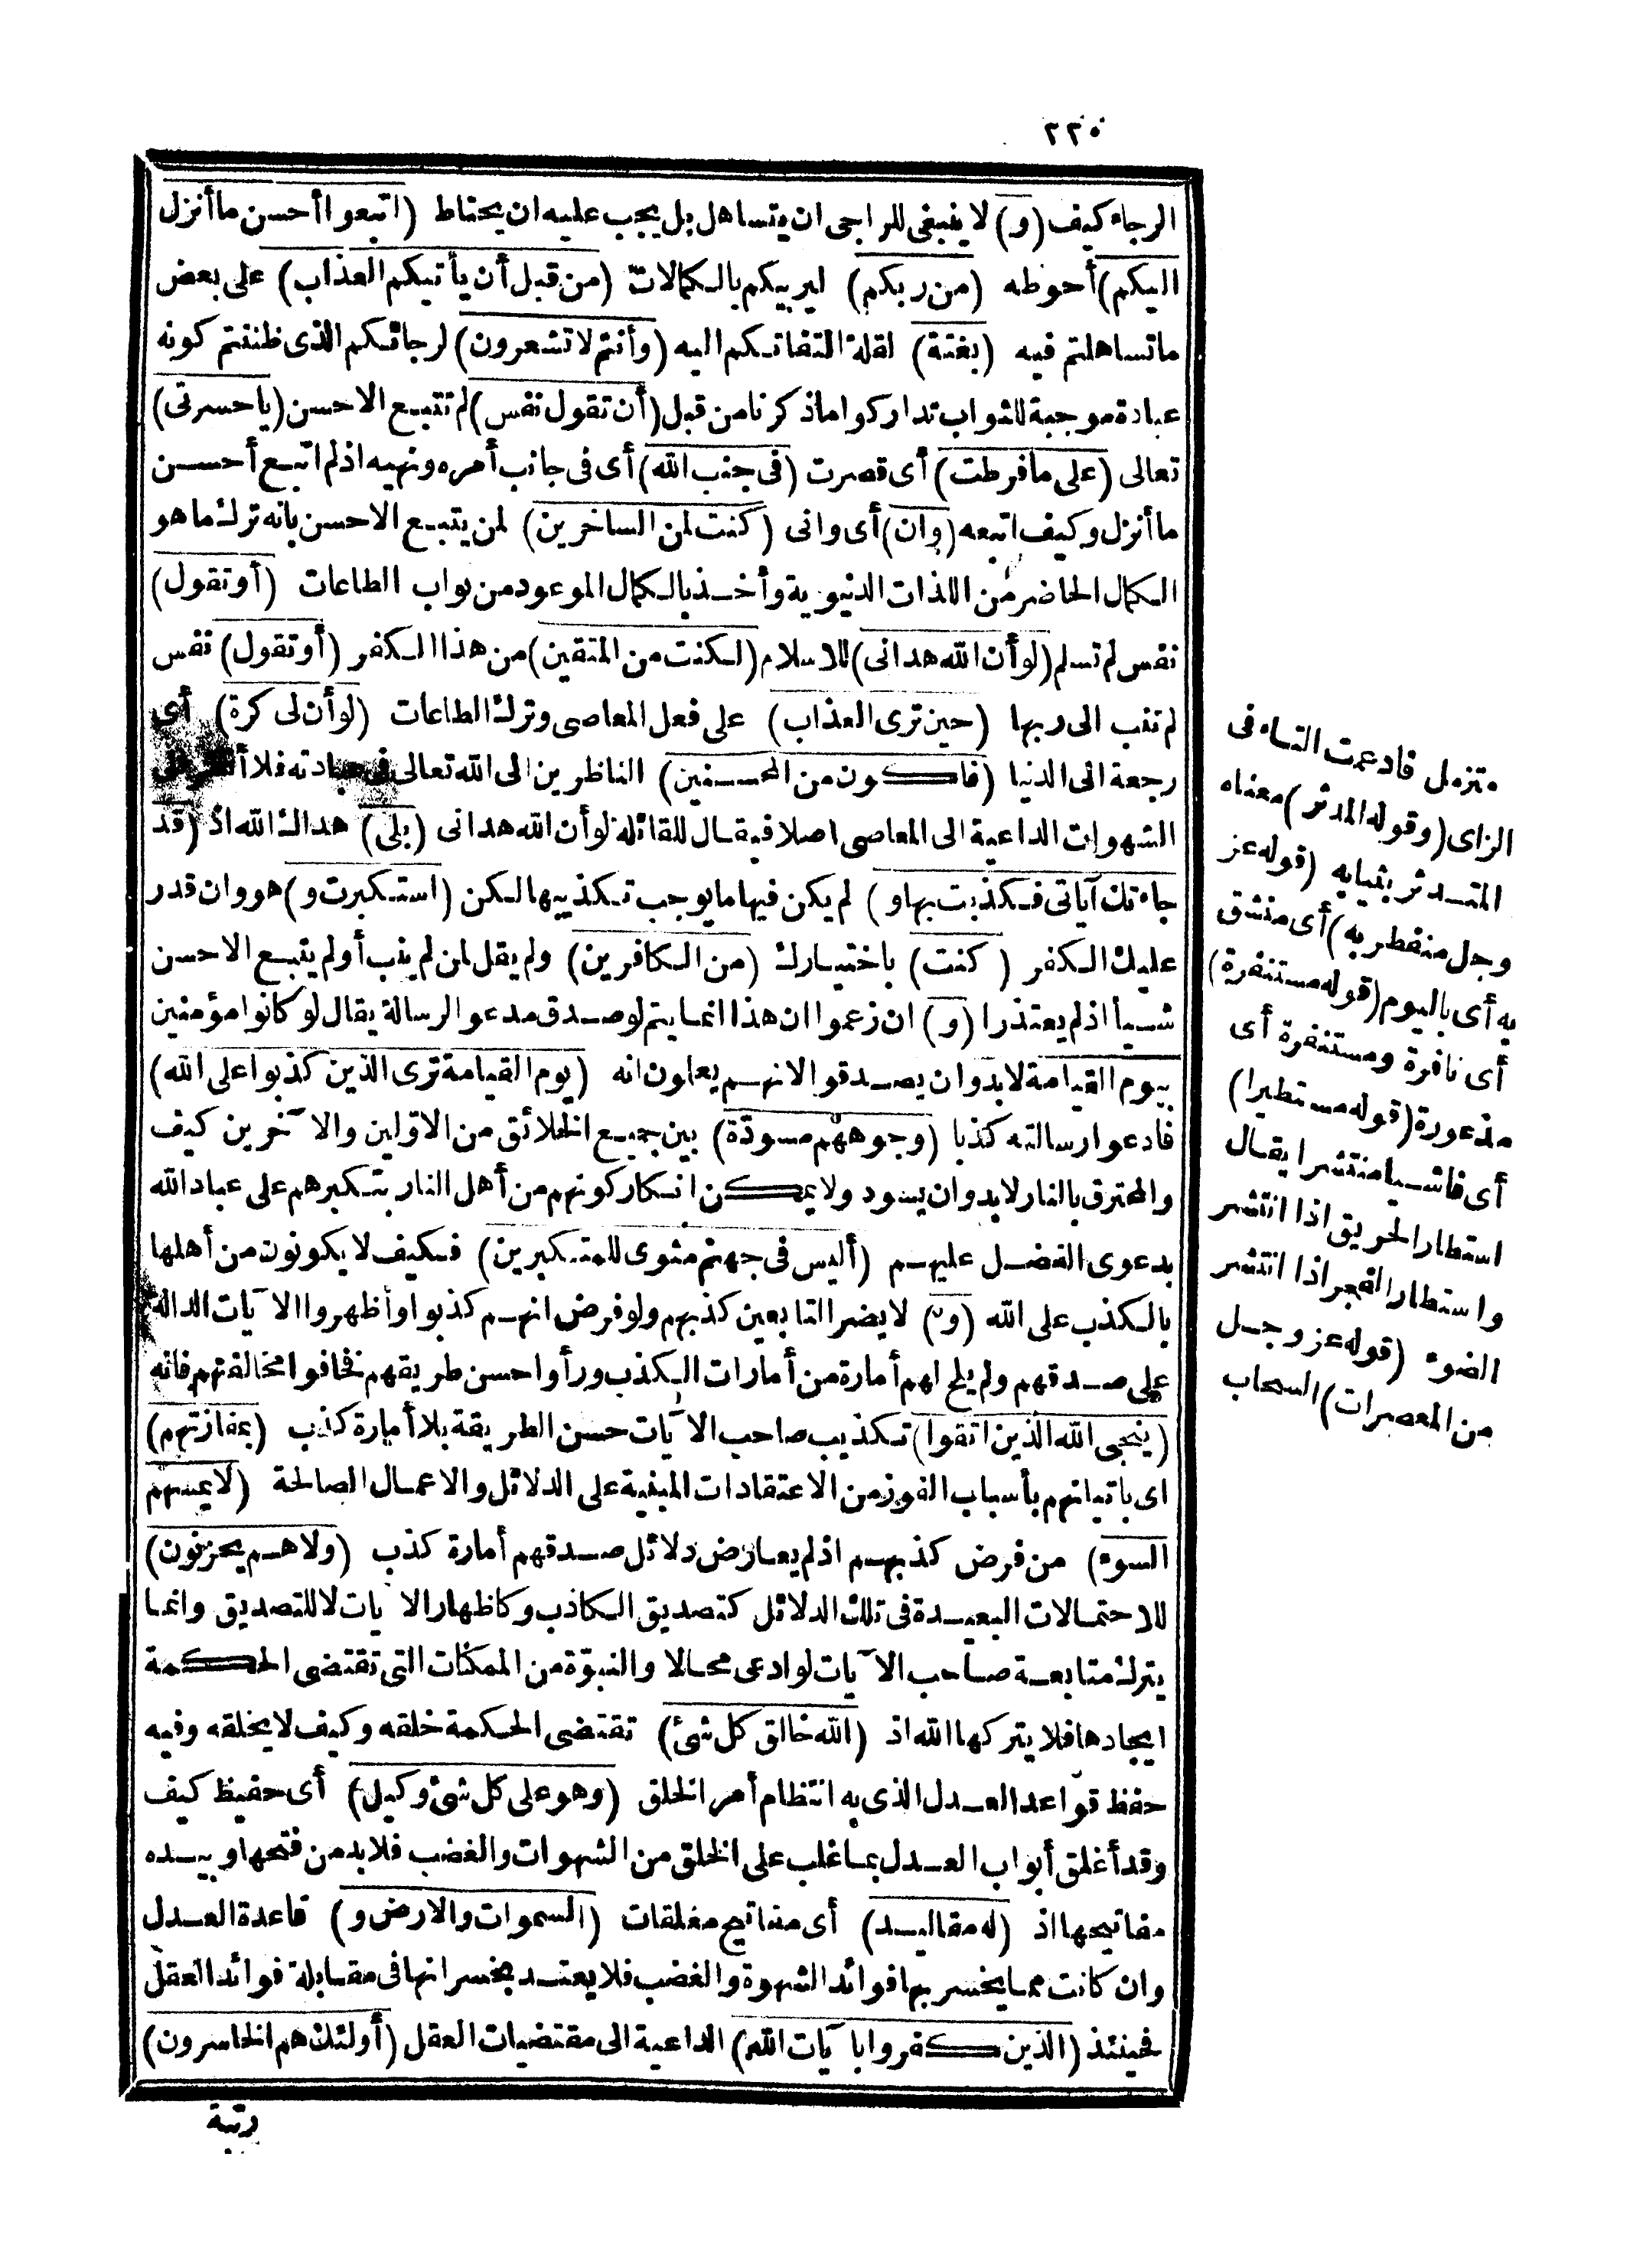 ٢٢٥
الرجاء كيف (و) لا ينبغى للراجى ان يتساهل بل يجب عليه ان يحتاط (اتبعوا أحسن ما أنزل
اليكم) أحوطه (من ربكم) ليربيكم بالكمالات (من قبل أن يأتيكم العذاب) على بعض
ما تساهلتم فيه (بغتة) لقلة التفاتكم اليه (وأنتم لا تشعرون) لرجائكم الذى ظننتم كونه
عبادة موجبة للثواب تداركوا ماذكرنا من قبل (أن تقول نفس) لم تتبع الاحسن (يا حسرتى)
تعالى (على ما فرطت) أى قصرت (فى جنب الله) أى فى جانب أمره ونهيه اذ لم اتبع أحسن
ما أنزل وكيف اتبعه (وان) أى وانى (كنت لمن الساخرين) لمن يتبع الاحسن بانه ترك ما هو
الكمال الحاضر من اللذات الدنيوية وأخذ بالكمال الموعود من ثواب الطاعات (أو تقول)
نفس لم تسلم (لو أن الله هدانى) للاسلام (لكنت من المتقين) من هذا الكفر (أو تقول) نفس
لم تنب الى ربها (حين ترى العذاب) على فعل المعاصى وترك الطاعات (لو أن لى كرة) أى
رجعة الى الدنيا (فأكون من المحسنين) الناظرين الى الله تعالى فى عبادته فلا
الشهوات الداعية الى المعاصى اصلا فيقال للقائلة لو أن الله هدانى (بلى) هداك الله اذ (قد
جاءتك آياتى فكذبت بها و) لم يكن فيها ما يوجب تكذيبها لكن (استكبرت و) هو وان قدر
عليك الكفر (كنت) باختيارك (من الكافرين) ولم يقل لمن لم ينب أو لم يتبع الاحسن
شيأ اذ لم يعتذرا (و) ان زعموا ان هذا انما يتم لو صدق مدعو الرسالة يقال لو كانوا مؤمنين
بيوم القيامة لا بد وان يصدقوا لانهم يعلمون انه (يوم القيامة ترى الذين كذبوا على الله)
فادعوا رسالته كذبا (وجوههم مسودّة) بين جميع الخلائق من الاولين والآخرين كيف
والمحترق بالنار لا بد وان يسود ولا يمكن انكار كونهم من أهل النار بتكبرهم على عباد الله
بدعوى الفضل عليهم (أليس فى جهنم مثوى للمتكبرين) فكيف لا يكونون من أهلها
بالكذب على الله (و) لا يضر التابعين كذبهم ولو فرض انهم كذبوا وأظهروا الآيات الدالة
على صدقهم ولم يلح لهم أمارة من أمارات الكذب ورأوا حسن طريقهم فخافوا مخالفتهم فانه
(ينجى الله الذين اتقوا) تكذيب صاحب الآيات حسن الطريقة بلا أمارة كذب (بمفازتهم)
اى باتيانهم بأسباب الفوز من الاعتقادات المبنية على الدلائل والاعمال الصالحة (لا يمسهم
السوء) من فرض كذبهم اذ لم يعارض دلائل صدقهم أمارة كذب (ولا هم يحزنون)
للاحتمالات البعيدة فى تلك الدلائل كتصديق الكاذب وكاظهار الآيات لا للتصديق وانما
يترك متابعة صاحب الآيات لو ادعى محالا والنبوّة من الممكنات التى تقتضى الحكمة
ايجادها فلا يتركها الله اذ (الله خالق كل شئ) تقتضى الحكمة خلقه وكيف لا يخلقه وفيه
حفظ قواعد العدل الذى به انتظام أمر الخلق (وهو على كل شئ وكيل) أى حفيظ كيف
وقد أغلق أبواب العدل بما غلب على الخلق من الشهوات والغضب فلا بد من فتحها وبيده
مفاتيحها اذ (له مقاليد) أى مفاتيح مغلقات (السموات والارض و) قاعدة العدل
وان كانت مما يخسر بها فوائد الشهوة والغضب فلا يعتد بخسرانها فى مقابلة فوائد العقل
فحينئذ (الذين كفروا بآيات الله) الداعية الى مقتضيات العقل (أولئك هم الخاسرون)
رتبة
متزمل فادغمت التاء فى
الزاى (وقوله المدثر) معناه
المتدثر بثيابه (قوله عز
وجل منفطر به) أى منشق
به أى باليوم (قوله مستنفرة)
أى نافرة ومستنفرة أى
مذعورة (قوله مستطيرا)
أى فاشيا منتشرا يقال
استطار الحريق اذا انتشر
واستطار الفجر اذا انتشر
الضوء (قوله عز وجل
من المعصرات) السحاب